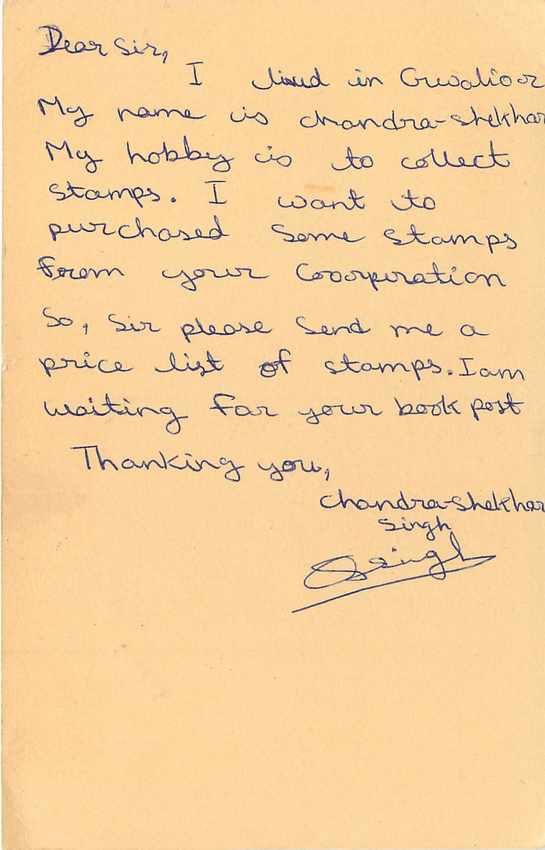 Dear Sir,
I lived in Gwalior
My name is chandra-shekhar
My hobby is to collect
stamps. I want to
purchased some stamps
from your Coorporation
So, Sir please send me a
price list of stamps. I am
waiting for your book post
Thanking you,
chandra-shekhar
singh
Csingh